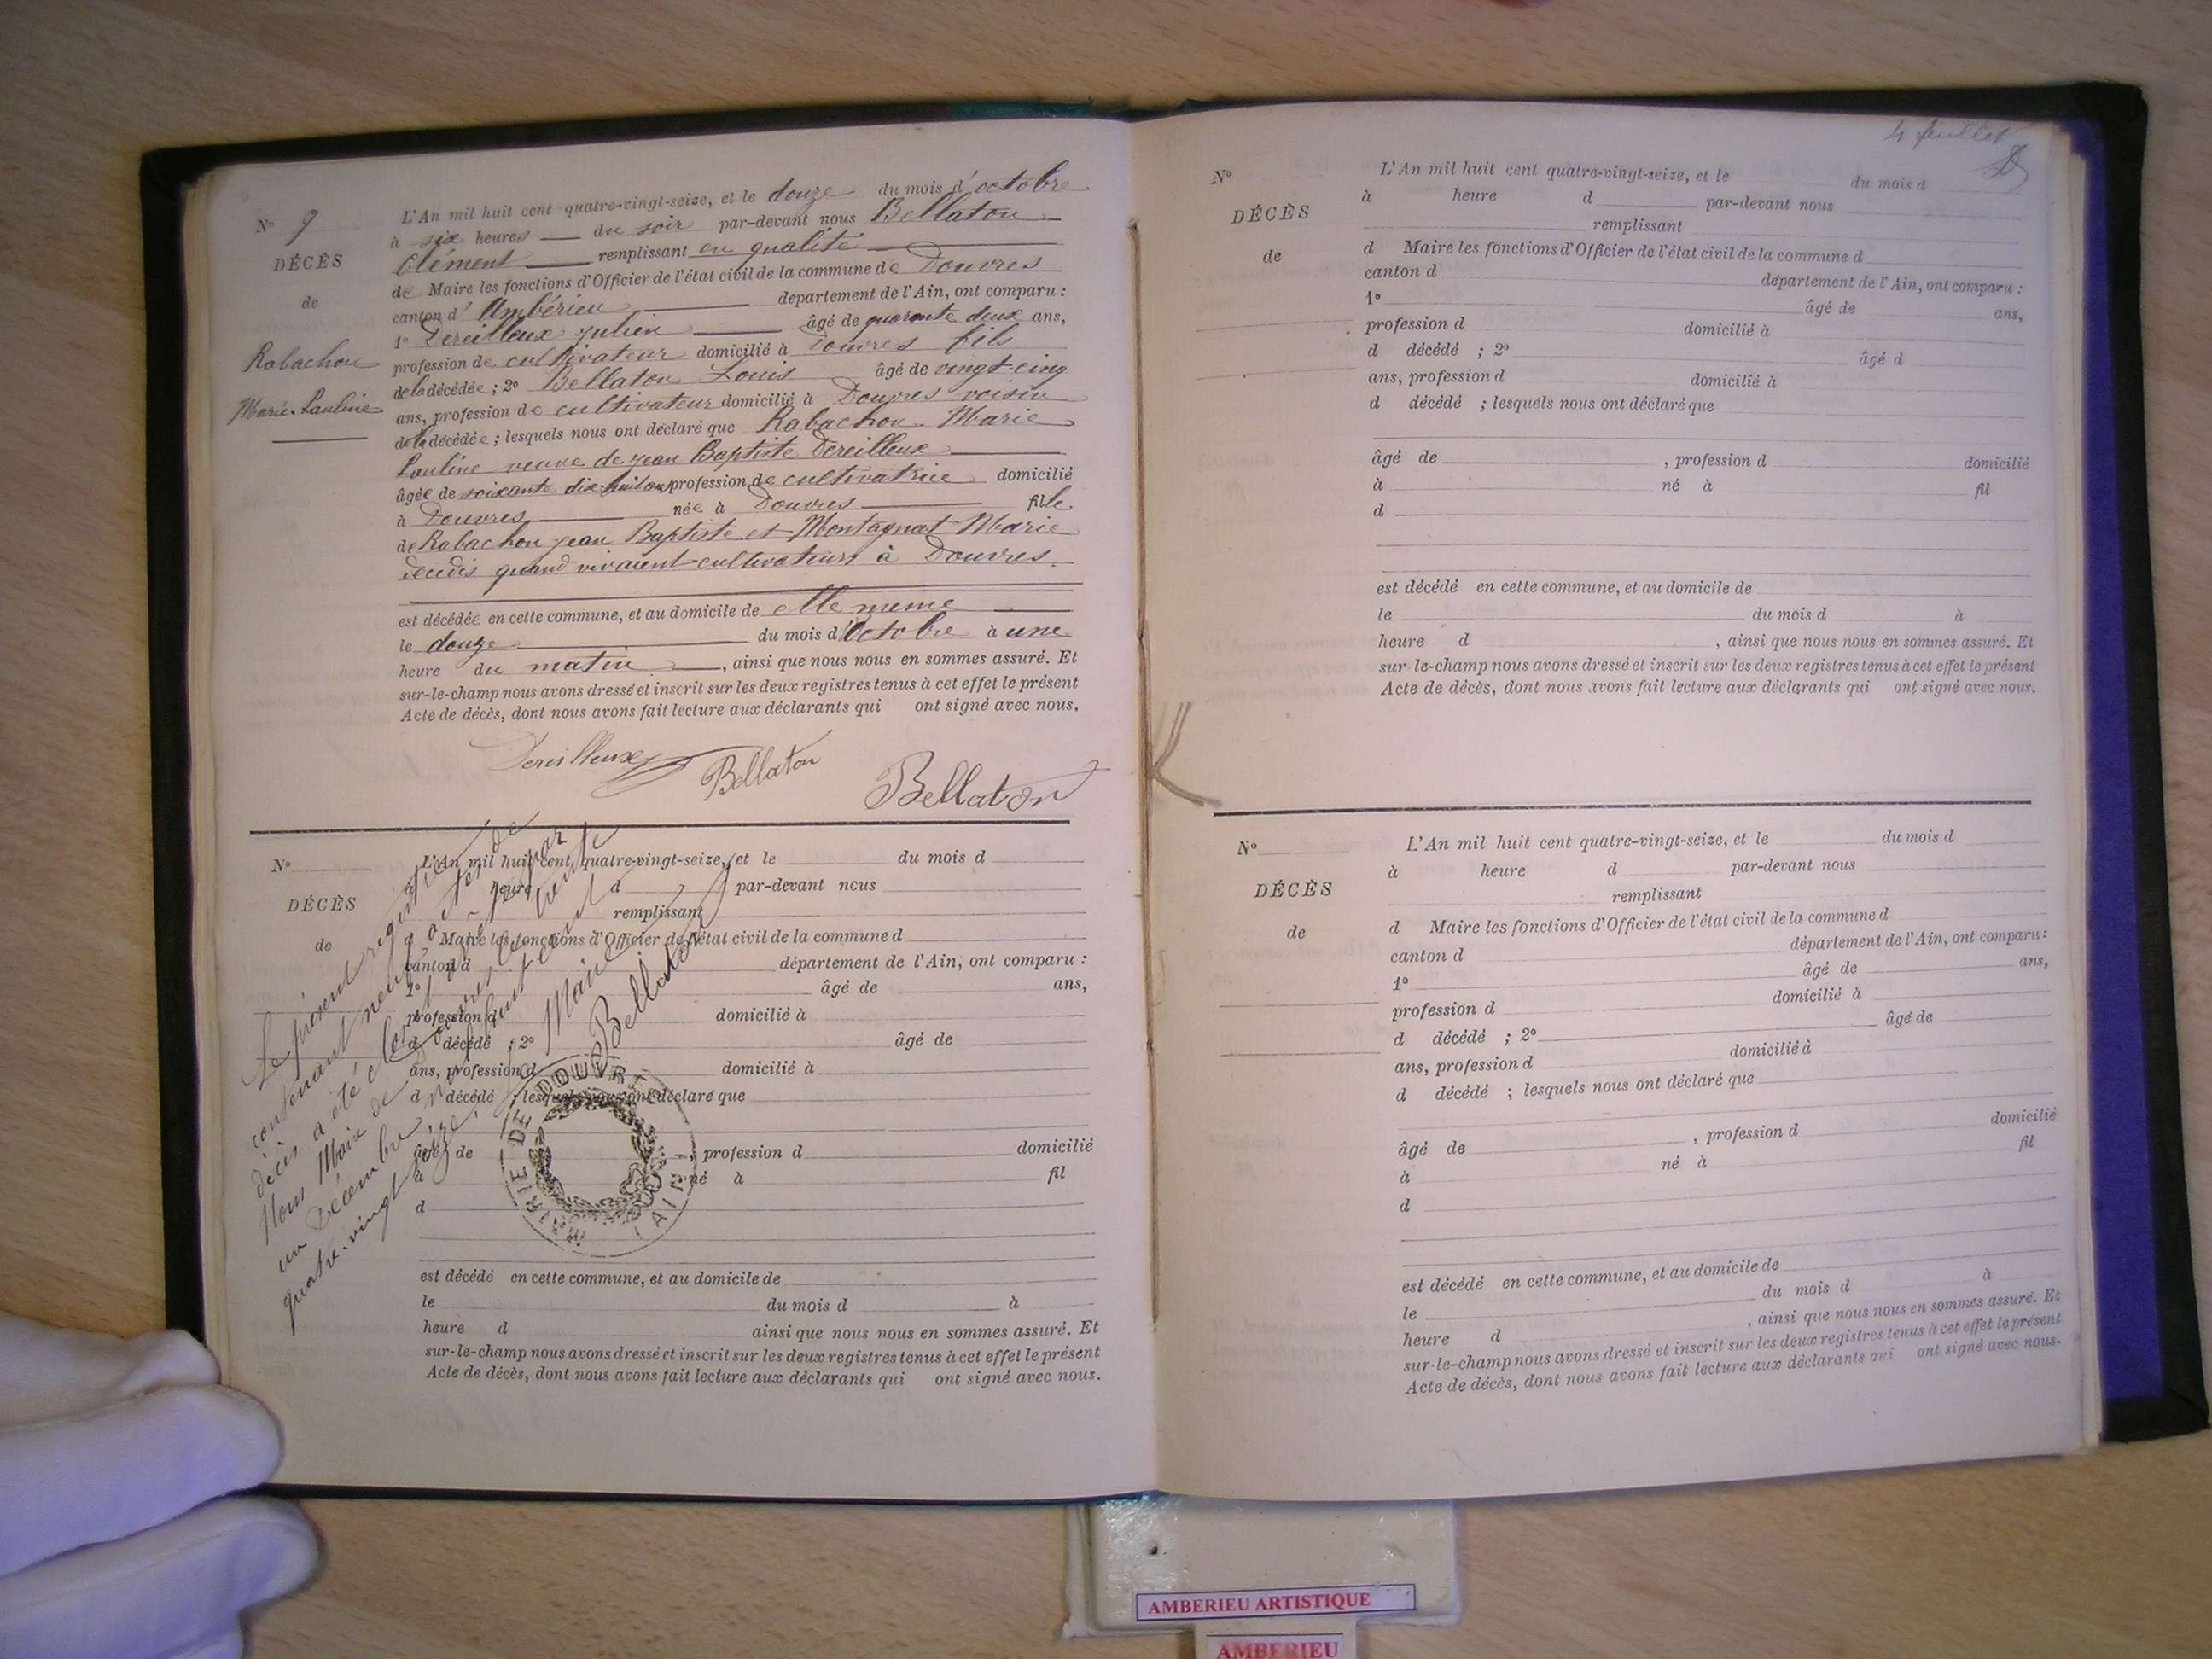 N° 9
DÉCÈS
de
Rabachon
Marie-Pauline
L'An mil huit cent quatre-vingt-seize, et le douze du mois d'octobre
à six heures du soir par-devant nous Bellaton
Clément remplissant en qualité
de Maire les fonctions d'Officier de l'état civil de la commune de Douvres
canton d'Ambérieu département de l'Ain, ont comparu :
1° Dereilleux Julien âgé de quarante deux ans,
profession de cultivateur domicilié à Douvres fils
de la décédée ; 2° Bellaton Louis âgé de vingt-cinq
ans, profession de cultivateur domicilié à Douvres voisin
de la décédée ; lesquels nous ont déclaré que Rabachon Marie
Pauline veuve de Jean Baptiste Dereilleux
âgée de soixante dix-huit ans profession de cultivatrice domicilié
à Douvres née à Douvres fille
de Rabachon Jean Baptiste et Montagnat Marie
décédés quand vivaient cultivateurs à Douvres.
est décédée en cette commune, et au domicile de elle meme
le douze du mois d'Octobre à une
heure du matin, ainsi que nous nous en sommes assuré. Et
sur-le-champ nous avons dressé et inscrit sur les deux registres tenus à cet effet le présent
Acte de décès, dont nous avons fait lecture aux déclarants qui ont signé avec nous.
Dereilleux Bellaton Bellaton
N°
DÉCÈS
de
L'An mil huit cent quatre-vingt-seize, et le du mois d
à heure d par-devant nous
remplissant
d Maire les fonctions d'Officier de l'état civil de la commune d
canton d département de l'Ain, ont comparu :
1° âgé de ans,
profession d domicilié à
d décédé ; 2° âgé de
ans, profession d domicilié à
d décédé ; lesquels nous ont déclaré que
âgé de , profession d domicilié
à né à fil
d
est décédé en cette commune, et au domicile de
le du mois d à
heure d ainsi que nous nous en sommes assuré. Et
sur-le-champ nous avons dressé et inscrit sur les deux registres tenus à cet effet le présent
Acte de décès, dont nous avons fait lecture aux déclarants qui ont signé avec nous.
Le présent registre de
contenant neuf
décès a été clos par
Nous Maire de Douvres le trente
un Décembre mil huit cent
quatre-vingt seize.
Maire
Bellaton
MAIRIE DE DOUVRES
(AIN)
4 feuillet
N°
DÉCÈS
de
L'An mil huit cent quatre-vingt-seize, et le du mois d
à heure d par-devant nous
remplissant
d Maire les fonctions d'Officier de l'état civil de la commune d
canton d département de l'Ain, ont comparu :
1° âgé de ans,
profession d domicilié à
d décédé ; 2° âgé d
ans, profession d domicilié à
d décédé ; lesquels nous ont déclaré que
âgé de , profession d domicilié
à né à fil
d
est décédé en cette commune, et au domicile de
le du mois d à
heure d , ainsi que nous nous en sommes assuré. Et
sur-le-champ nous avons dressé et inscrit sur les deux registres tenus à cet effet le présent
Acte de décès, dont nous avons fait lecture aux déclarants qui ont signé avec nous.
N°
DÉCÈS
de
L'An mil huit cent quatre-vingt-seize, et le du mois d
à heure d par-devant nous
remplissant
d Maire les fonctions d'Officier de l'état civil de la commune d
canton d département de l'Ain, ont comparu :
1° âgé de ans,
profession d domicilié à
d décédé ; 2° âgé de
ans, profession d domicilié à
d décédé ; lesquels nous ont déclaré que
âgé de , profession d domicilié
à né à fil
d
est décédé en cette commune, et au domicile de
le du mois d à
heure d , ainsi que nous nous en sommes assuré. Et
sur-le-champ nous avons dressé et inscrit sur les deux registres tenus à cet effet le présent
Acte de décès, dont nous avons fait lecture aux déclarants qui ont signé avec nous.
AMBERIEU ARTISTIQUE
AMBERIEU